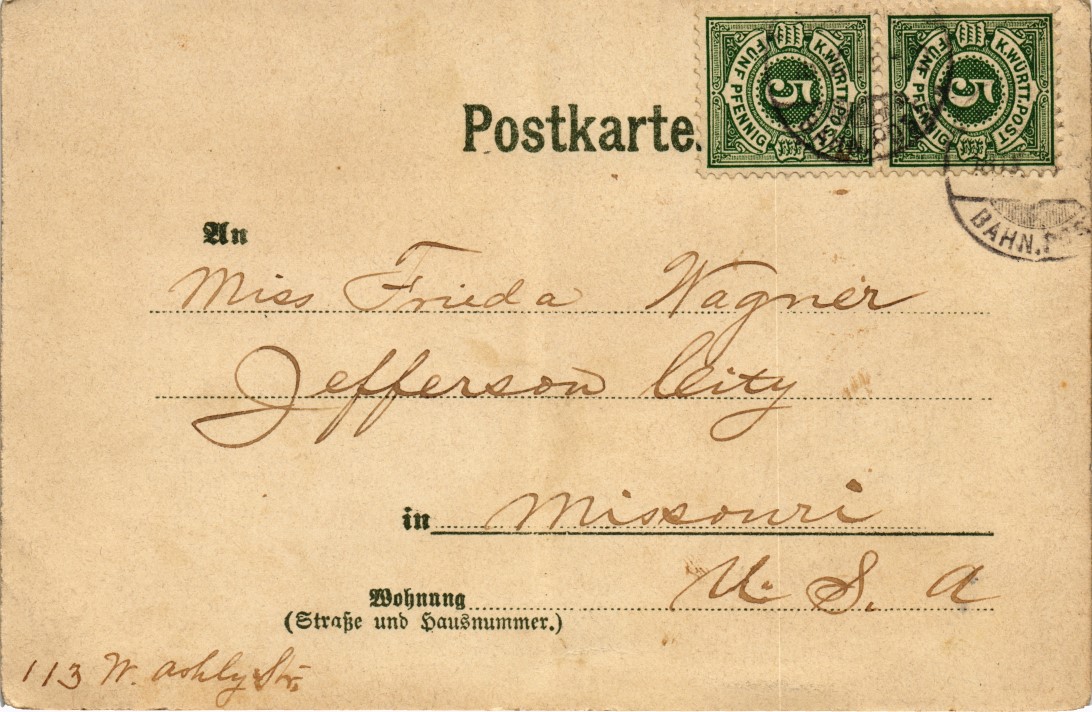 K.WÜRTT.POST
FÜNF PFENNIG
5
K.WÜRTT.POST
FÜNF PFENNIG
5
Postkarte.
BAHN.POS
An
Miss Frieda Wagner
Jefferson City
in Missouri
U. S. A
Wohnung
(Straße und Hausnummer.)
113 W. Ashly Str.